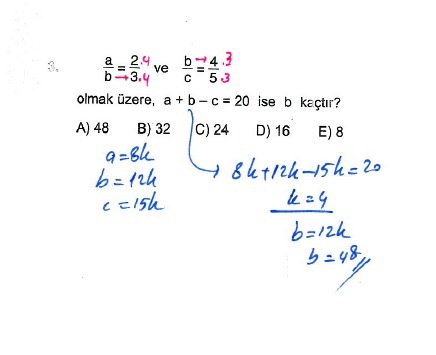 3. a/b = 2.4/3.4 ve b/c = 4.3/5.3
olmak üzere, a + b – c = 20 ise b kaçtır?
A) 48 B) 32 C) 24 D) 16 E) 8
a=8k
b=12k
c=15k
8k+12k-15k=20
k=4
b=12k
b=48